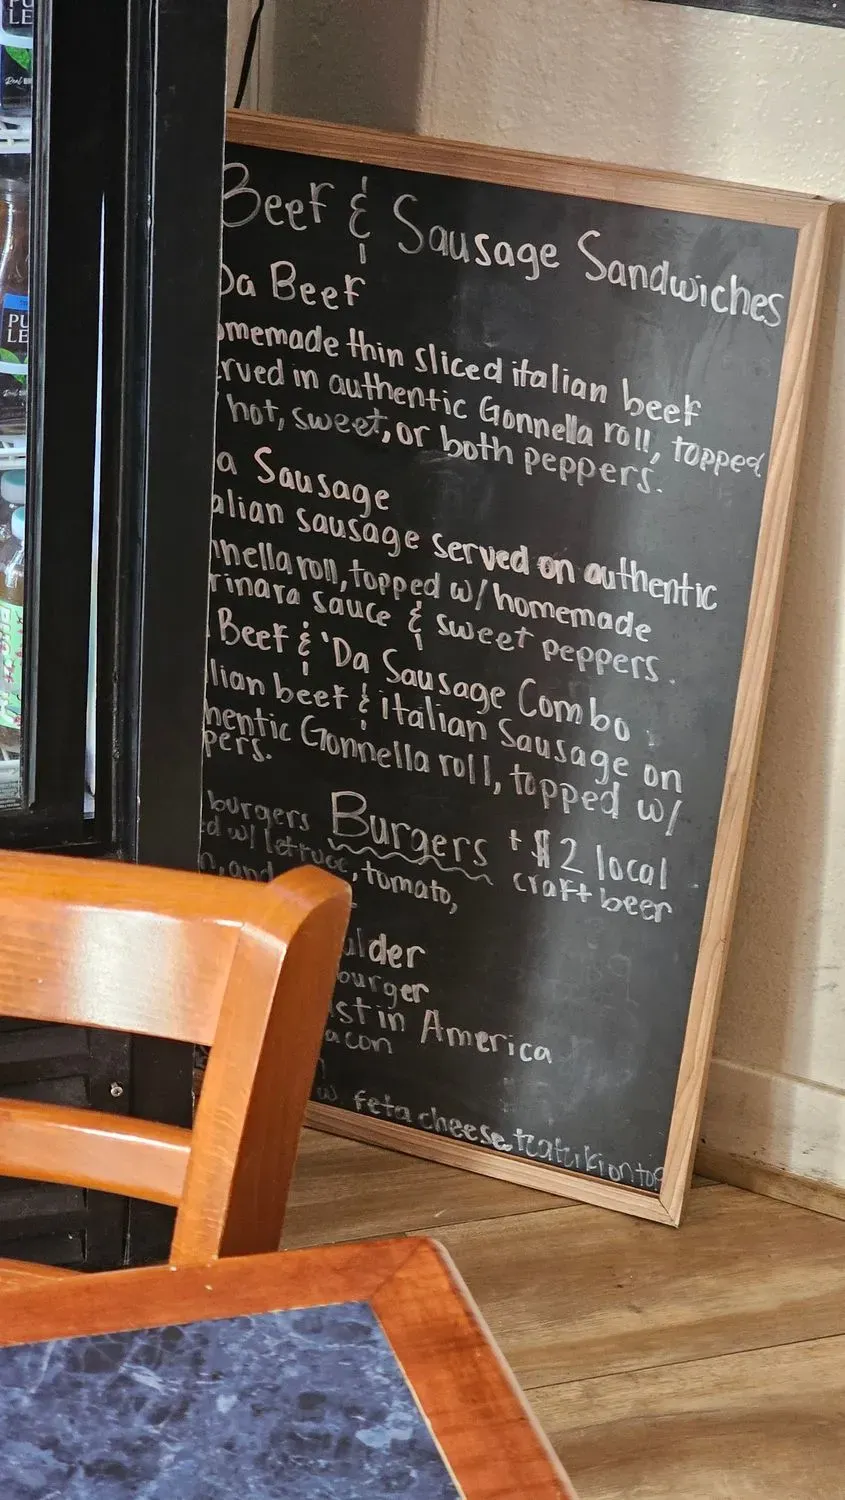 Beef & Sausage Sandwiches
Da Beef
omemade thin sliced italian beef
rved in authentic Gonnella roll, topped
hot, sweet, or both peppers.
a Sausage
alian sausage served on authentic
nnella roll, topped w/ homemade
rinara sauce & sweet peppers.
Beef & 'Da Sausage Combo
lian beef & italian Sausage on
hentic Gonnella roll, topped w/
pers.
Burgers
+$2 local
craft beer
burgers
ed w/ lettuce, tomato,
n, and
ulder
burger
st in America
acon
w. feta cheese, tzatziki on top
PU
LE